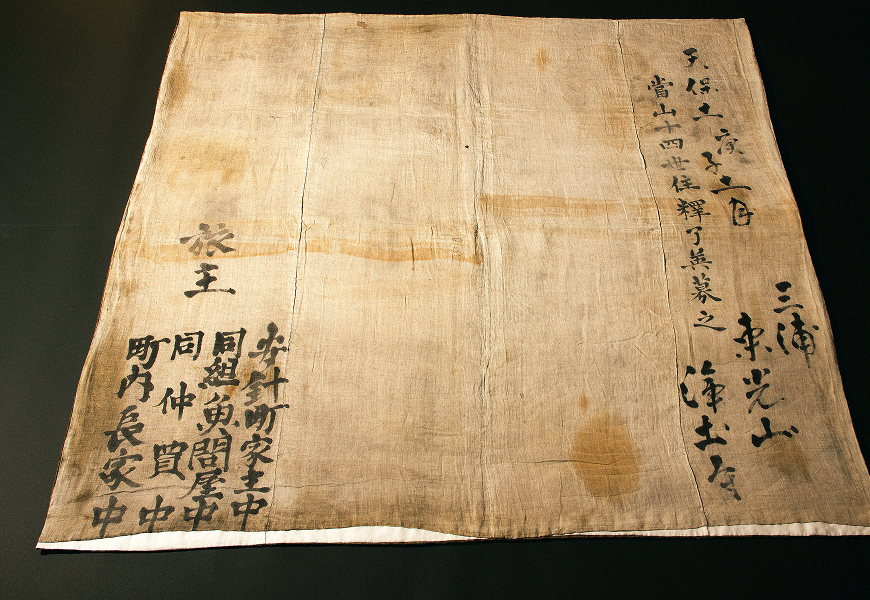 天保十一庚子十一月
當山十四世住釋了英募之
三浦
東光山
浄土寺
施主
安針町家主中
同組魚問屋中
同仲買中
町内長家中